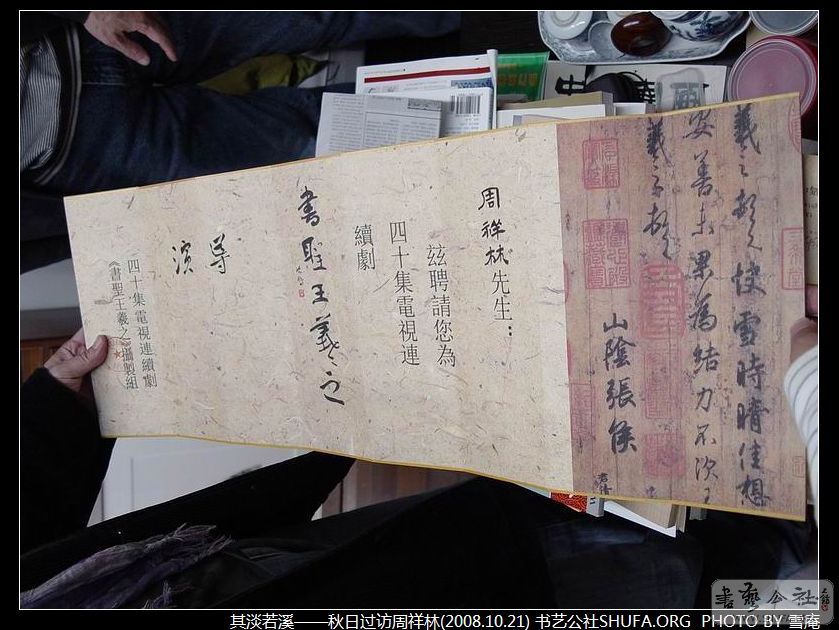 羲之頓首快雪時晴佳想
安善未果為結力不次王
羲之頓首
山陰張侯
周祥林先生：
兹聘請您為
四十集電視連
續劇
書聖王羲之
導
演
四十集電視連續劇
《書聖王羲之》攝製組
其淡若溪——秋日过访周祥林(2008.10.21) 书艺公社SHUFA.ORG PHOTO BY 雪庵
書藝公社